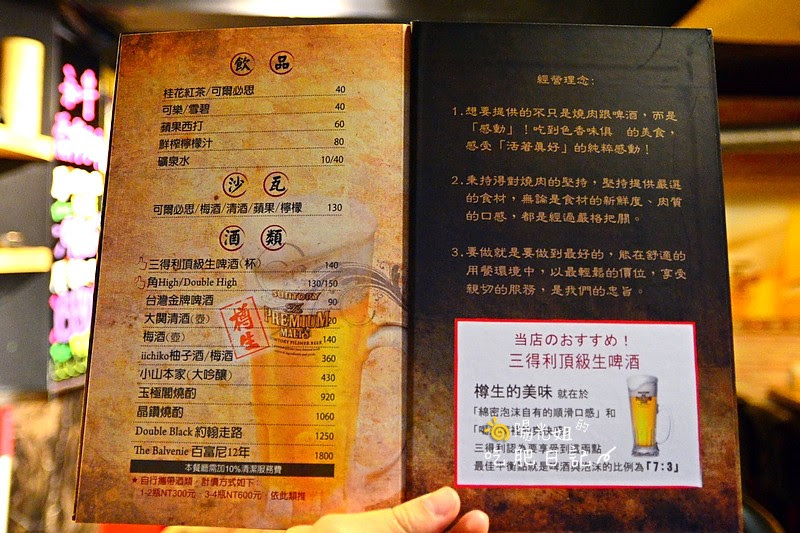 飲品
桂花紅茶/可爾必思 40
可樂/雪碧 40
蘋果西打 60
鮮榨檸檬汁 80
礦泉水 10/40
沙瓦
可爾必思/梅酒/清酒/蘋果/檸檬 130
酒類
三得利頂級生啤酒(杯) 140
角High/Double High 130/150
台灣金牌啤酒 90
大関清酒(壺)
梅酒(壺) 140
iichiko柚子酒/梅酒 360
小山本家(大吟釀) 430
玉極閣燒酌 920
晶鑽燒酌 1060
Double Black 約翰走路 1250
The Balvenie 百富尼12年 1800
本餐廳需加10%清潔服務費
★自行攜帶酒類,計價方式如下
1-2瓶NT300元、3-4瓶NT600元、依此類推
SUNTORY
The
PREMIUM
MALT'S
樽生
經營理念:
1.想要提供的不只是燒肉跟啤酒,而是
「感動」!吃到色香味俱 的美食,
感受「活著真好」的純粹感動!
2.秉持得對燒肉的堅持,堅持提供嚴選
的食材,無論是食材的新鮮度、肉質
的口感,都是經過嚴格把關。
3.要做就是要做到最好的,能在舒適的
用餐環境中,以最輕鬆的價位,享受
親切的服務,是我們的忠旨。
当店のおすすめ!
三得利頂級生啤酒
樽生的美味 就在於
「綿密泡沫自有的順滑口感」和
三得利認為要享受到這兩點
最佳平衡點就是啤酒與泡沫的比例為「7:3」
陽光姐的
吃肥日記